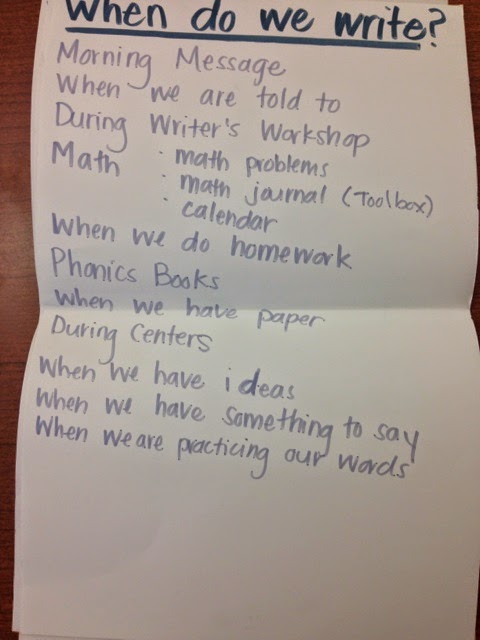 When do we write?
Morning Message
When we are told to
During Writer's Workshop
Math · math problems
· math journal (Toolbox)
· calendar
When we do homework
Phonics Books
When we have paper
During Centers
When we have ideas
When we have something to say
When we are practicing our words